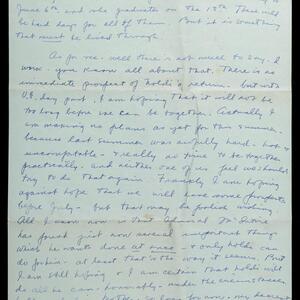 June 6th and who graduates on the 13th. These will
be hard days for all of them. But it is something
that must be lived through.
As for me - well there is not much to say. I
work - you know all about that. There is no
immediate prospect of return. but with
V.E. day past, I am hoping that it will not be
too long before we can be together. Actually I
am making no plans as yet for this summer.
because last summer was awfully hard - hot &
uncomfortable - & really no time to be together
practically. and neither one of us feel we should
try to do that again. Finally I am hoping
against hope that we will have some prospects
before July - but that may be
All I know now is that Admiral
has found just now several important things
which he wants done at once - & only
can do for him - at least that is the way it seems. But
I am still hoping & I am certain that will
do all he can - honorably - under the circumstances